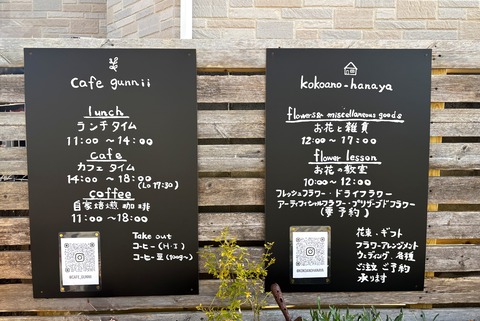 Cafe gunnii
lunch
ランチタイム
11:00 〜 14:00
cafe
カフェタイム
14:00 〜 18:00
(Lo 17:30)
coffee
自家焙煎珈琲
11:00 〜 18:00
Take out
コーヒー (H・I)
コーヒー豆 (100g〜)
@CAFE_GUNNII
kokoano-hanaya
flowers & miscellaneous goods
お花と雑貨
12:00 〜 17:00
flower lesson
お花の教室
10:00 〜 12:00
フレッシュフラワー・ドライフラワー
アーティフィシャルフラワー・プリザーブドフラワー
(要予約)
花束・ギフト
フラワーアレンジメント
ウェディング、各種
ご注文ご予約
承ります
@KOKOANOHANAYA